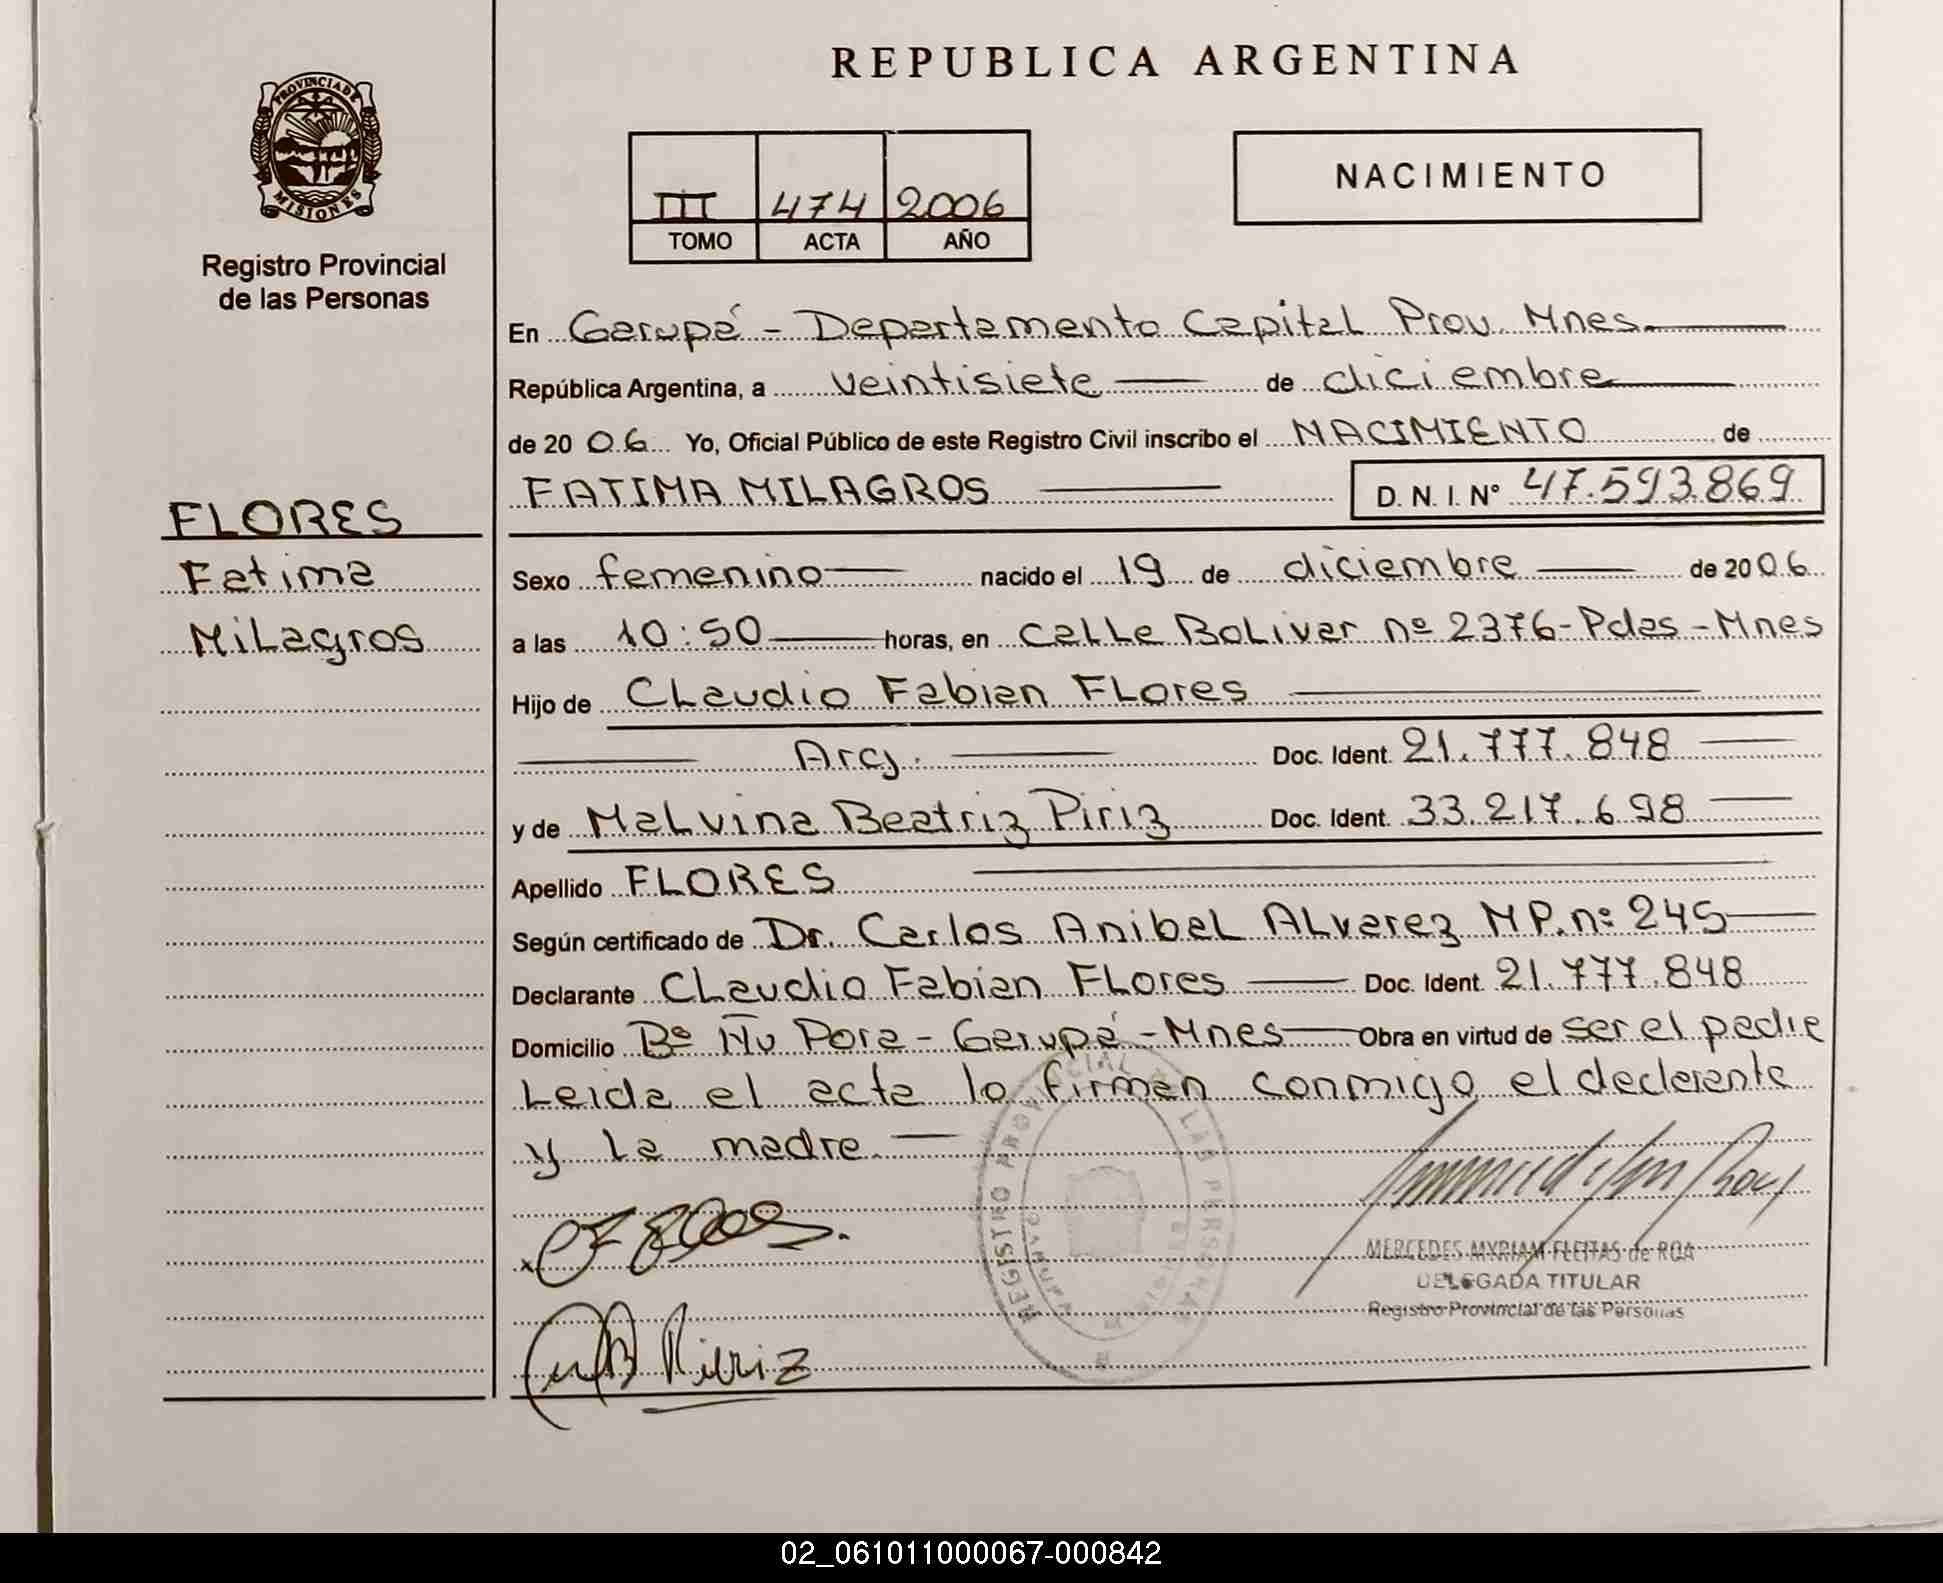 REPUBLICA ARGENTINA
PROVINCIA DE
MISIONES
Registro Provincial
de las Personas
III 474 2006
TOMO ACTA AÑO
NACIMIENTO
En Garupá - Departamento Capital Prov. Mnes.
República Argentina, a veintisiete de diciembre
de 20 06 Yo, Oficial Público de este Registro Civil inscribo el NACIMIENTO de
FATIMA MILAGROS D. N. I. Nº 47.593.869
FLORES
Fatima
Milagros
Sexo femenino nacido el 19 de diciembre de 20 06
a las 10:50 horas, en Calle Bolivar nº 2376 - Pdas - Mnes
Hijo de Claudio Fabian Flores
Arg. Doc. Ident. 21.777.848
y de Malvina Beatriz Piriz Doc. Ident. 33.217.698
Apellido FLORES
Según certificado de Dr. Carlos Anibal Alvarez MP. nº 245
Declarante Claudio Fabian Flores Doc. Ident. 21.777.848
Domicilio Bº Ñu Pora - Garupá - Mnes Obra en virtud de ser el padre
Leida el acta lo firman conmigo el declarante
y la madre.
REGISTRO PROVINCIAL DE LAS PERSONAS
MERCEDES MYRIAM FLEITAS de ROA
DELEGADA TITULAR
Registro Provincial de las Personas
02_061011000067-000842